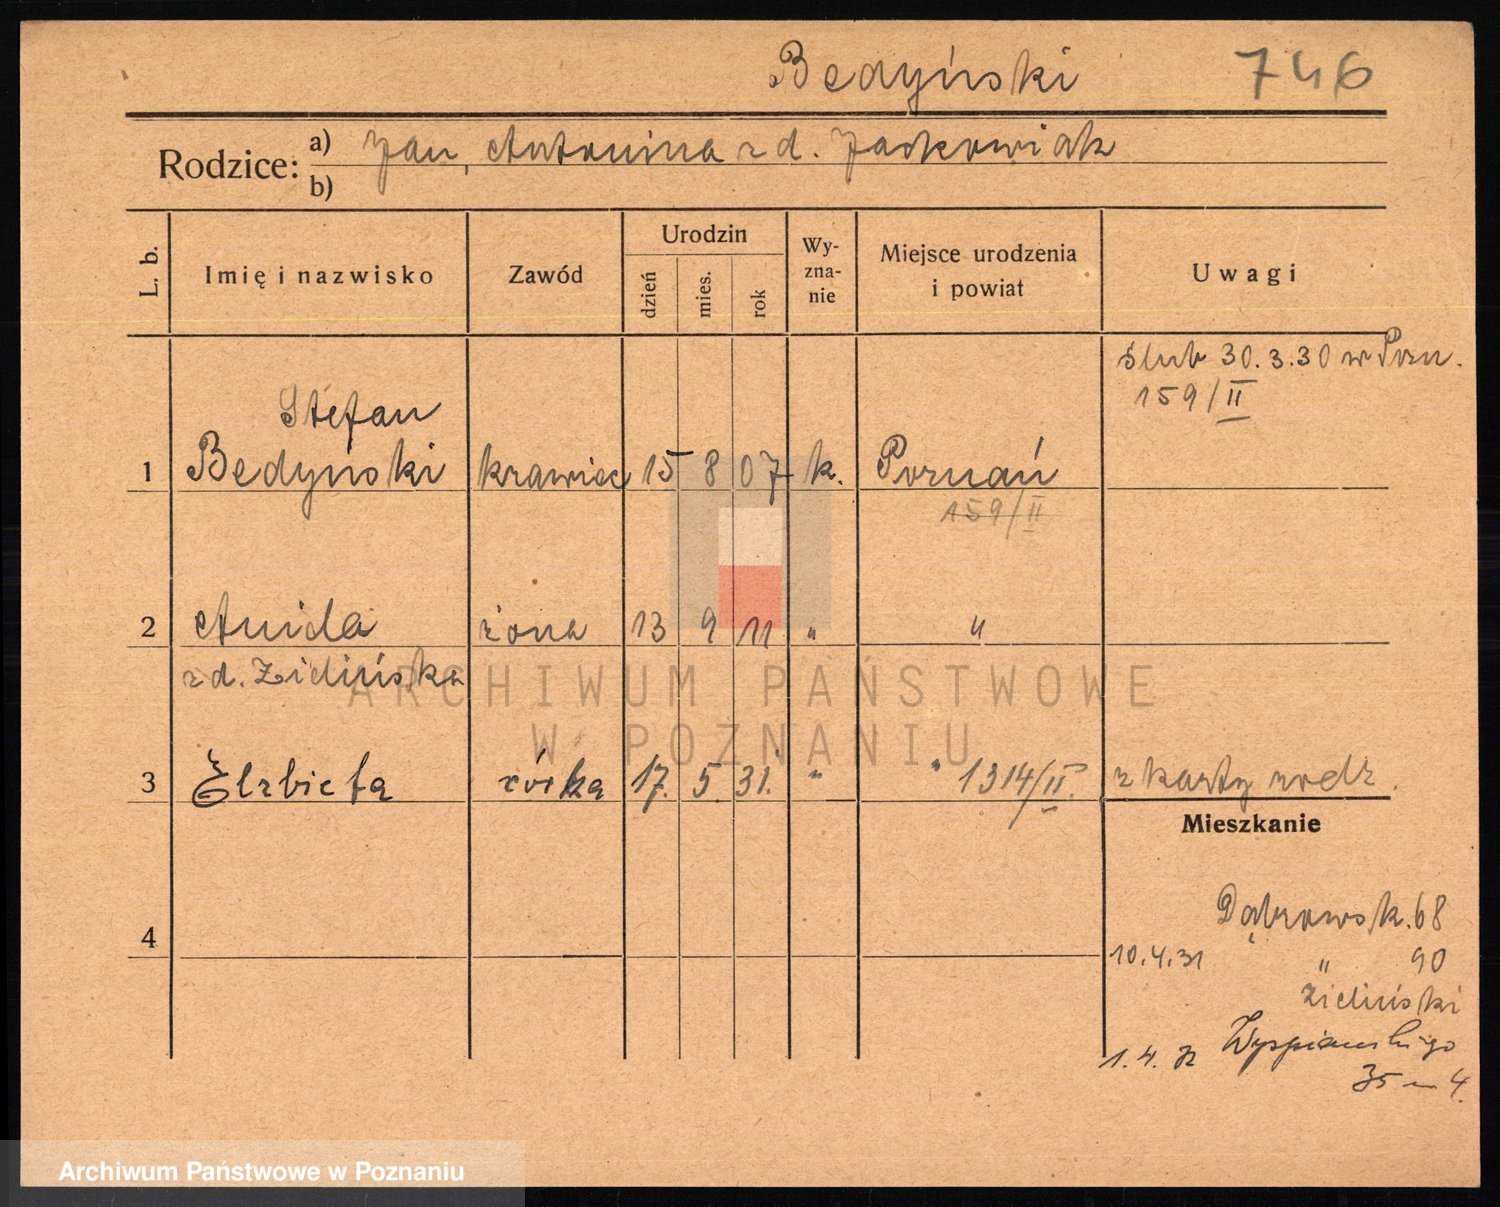 Bedyński 746
Rodzice: a) Jan, Antonina z d. Jaskowiak
b)
L. b. Imię i nazwisko Zawód Urodzin dzień mies. rok Wy-zna-nie Miejsce urodzenia i powiat Uwagi
ślub 30.3.30 w Pozn.
159/II
Stefan
1 Bedyński krawiec 15 8 07 k. Poznań
159/II
2 Anida żona 13 9 11 " "
z d. Zielińska
3 Elzbieta córka 17. 5. 31. " " 1314/II. z karty urodz.
Mieszkanie
Dąbrowsk. 68
4
10.4.31 " 90
Zieliński
1.4.32 Wyspiańskiego
35 m 4.
ARCHIWUM PAŃSTWOWE
W POZNANIU
Archiwum Państwowe w Poznaniu